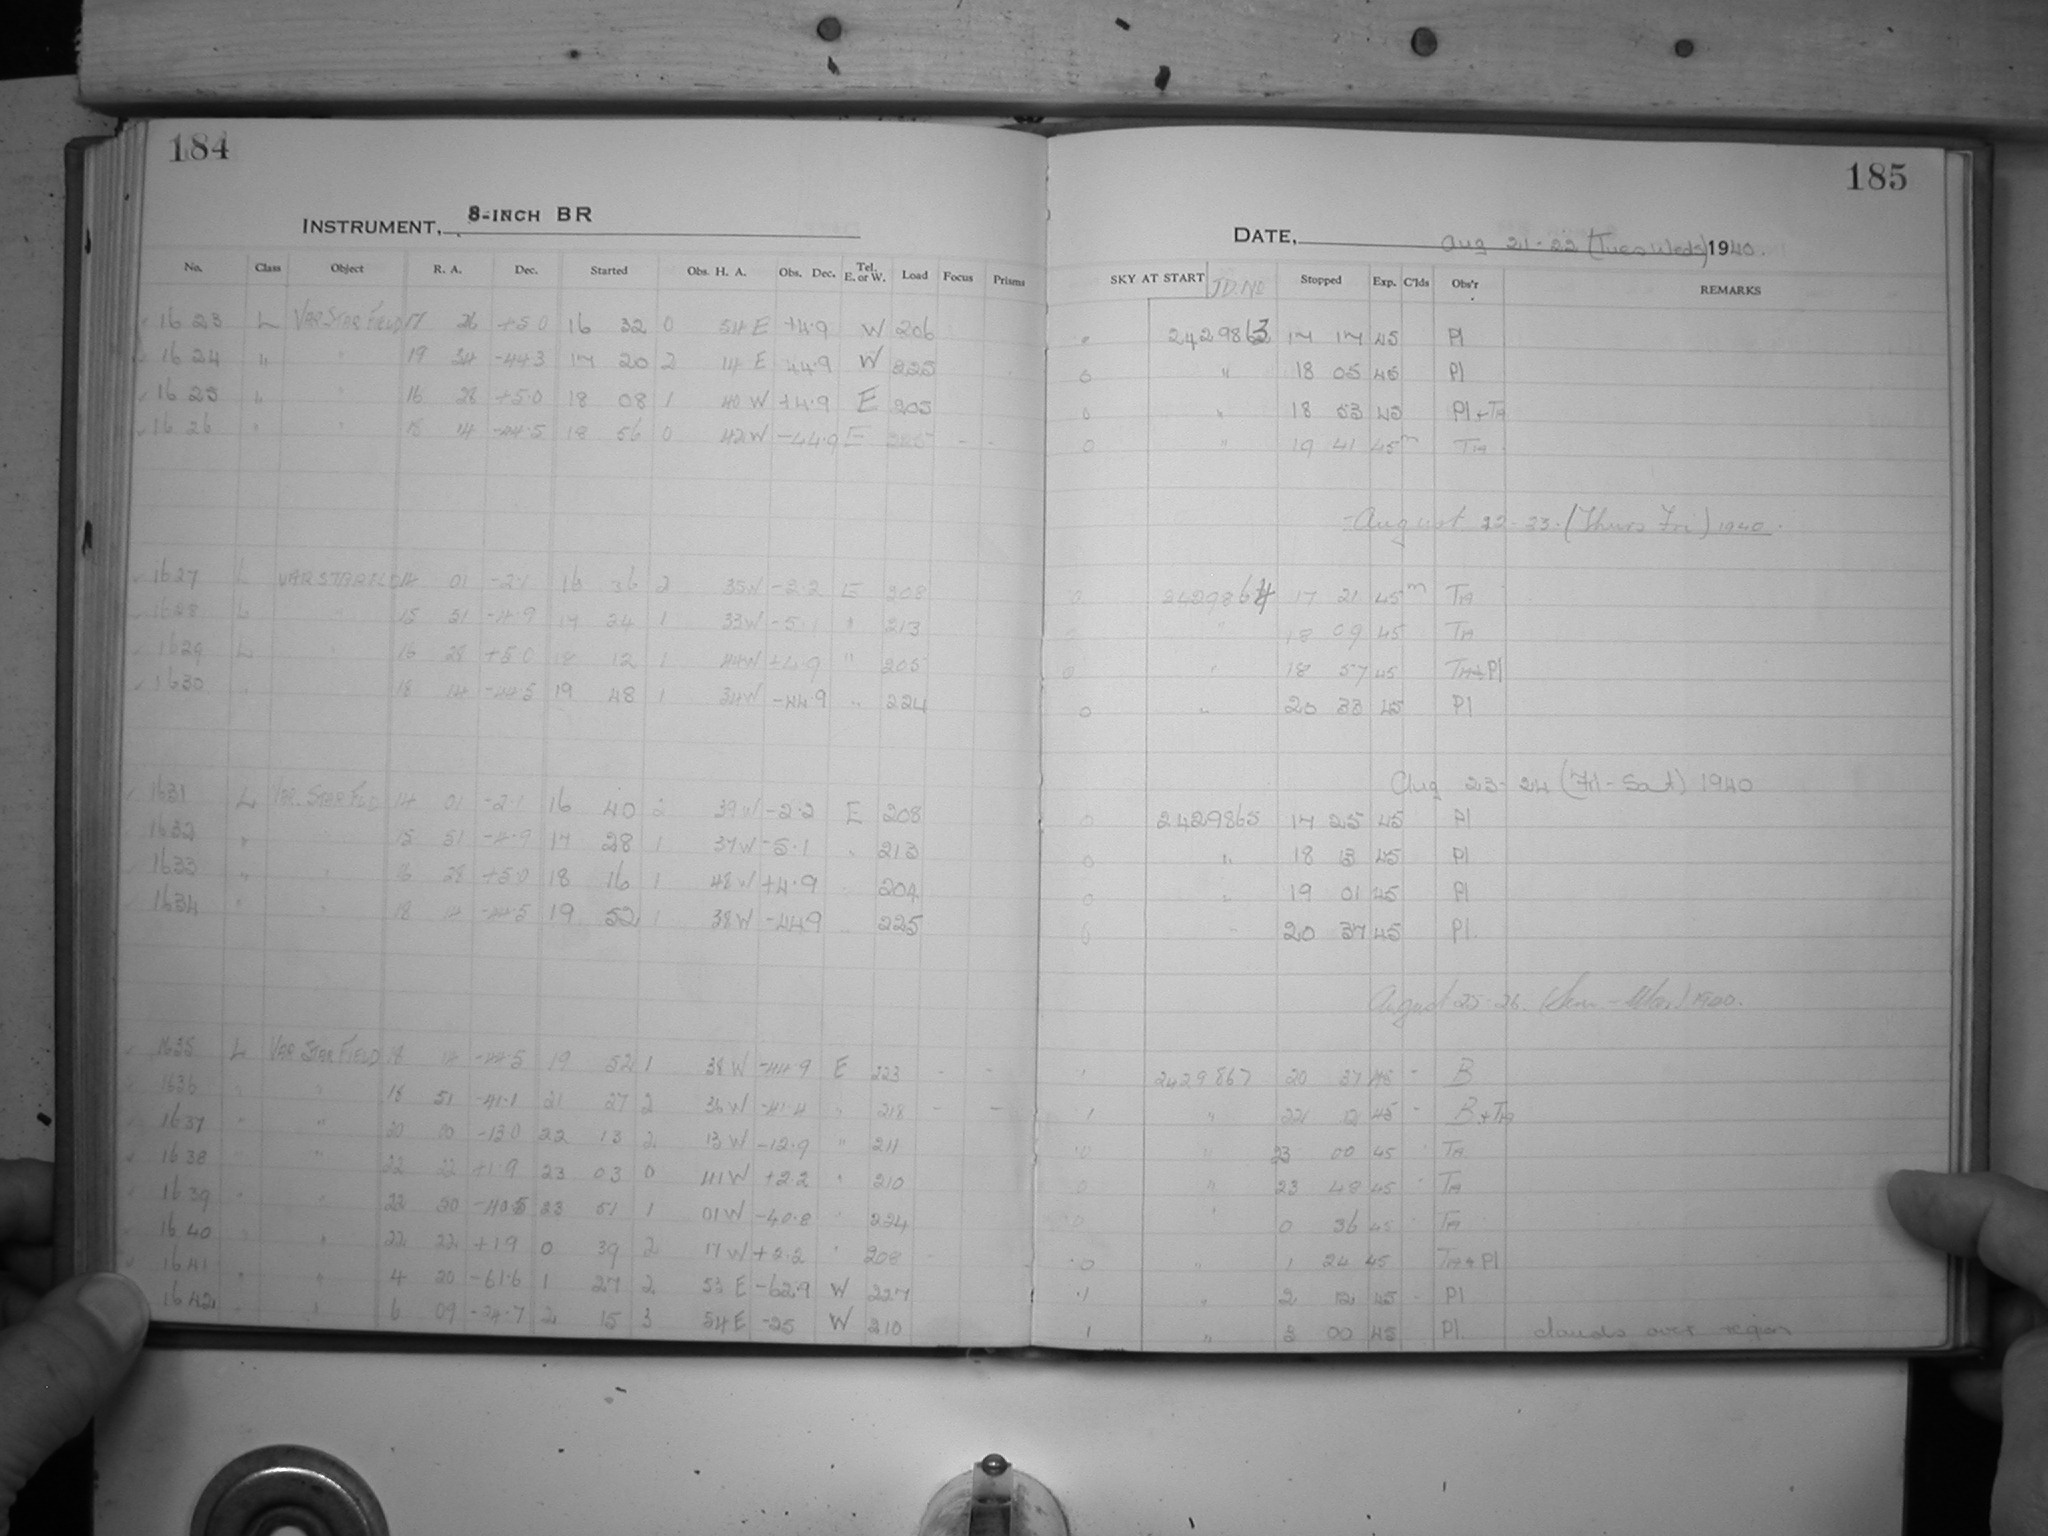 184
INSTRUMENT, 8-INCH BR
No. Class Object R. A. Dec. Started Obs. H. A. Obs. Dec. Tel. E. or W. Load Focus Prisms
1623 L VAR STAR FIELD 17 26 +5.0 16 32 0 54 E +4.9 W 206
1624 " " 19 34 -44.3 17 20 2 14 E 44.9 W 225
1625 " " 16 28 +5.0 18 08 1 40 W +4.9 E 205
1626 " " 18 14 -44.5 18 56 0 42 W -44.9 E
1627 L VAR STAR FLD 14 01 -2.1 16 36 2 35W -2.2 E 208
1628 L " 15 51 -4.9 17 24 1 33W -5.1 " 213
1629 L " 16 28 +5.0 18 12 1 44W +4.9 " 205
1630 " 18 14 -44.5 19 48 1 34W -44.9 " 224
1631 L VAR. STAR FLD 14 01 -2.1 16 40 2 39W -2.2 E 208
1632 " 15 51 -4.9 17 28 1 37W -5.1 " 213
1633 " " 16 28 +5.0 18 16 1 48W +4.9 204
1634 " " 18 14 -44.5 19 52 1 38W -44.9 " 225
1635 L VAR STAR FIELD 18 14 -44.5 19 52 1 38 W -44.9 E 223 - -
1636 " " 18 51 -41.1 21 27 2 36 W -41.4 " 218 - -
1637 " " 20 10 -13.0 22 13 2 13 W -12.9 " 211
1638 " " 22 22 +1.9 23 03 0 41 W +2.2 " 210
1639 " " 22 50 -40.5 23 51 1 01 W -40.8 " 224
1640 " " 22 22 +1.9 0 39 2 17 W +2.2 " 208
1641 " " 4 20 -61.6 1 27 2 53 E -62.9 W 227
1642 " " 6 09 -24.7 2 15 3 54 E -25 W 210
185
DATE, Aug 21-22 (Tues Weds) 1940.
SKY AT START JD. No Stopped Exp. C'lds Obs'r REMARKS
2429863 17 17 45 Pl
0 " 18 05 45 Pl
0 " 18 53 45 Pl + TA
0 " 19 41 45m TA
August 22-23. (Thurs Fri) 1940.
0 2429864 17 21 45m TA
" 18 09 45 TA
0 " 18 57 45 TA+Pl
0 " 20 33 45 Pl
Aug 23-24 (Fri-Sat) 1940
0 2429865 17 25 45 Pl
0 " 18 13 45 Pl
0 " 19 01 45 Pl
0 " 20 37 45 Pl.
August 25-26. (Sun-Mon) 1940.
1 2429867 20 37 45 - B
1 " 22 12 45 - B + TA
0 " 23 00 45 TA
0 " 23 48 45 TA
0 " 0 36 45 TA
0 " 1 24 45 TA + Pl
1 " 2 12 45 Pl
1 " 3 00 45 Pl. clouds over region